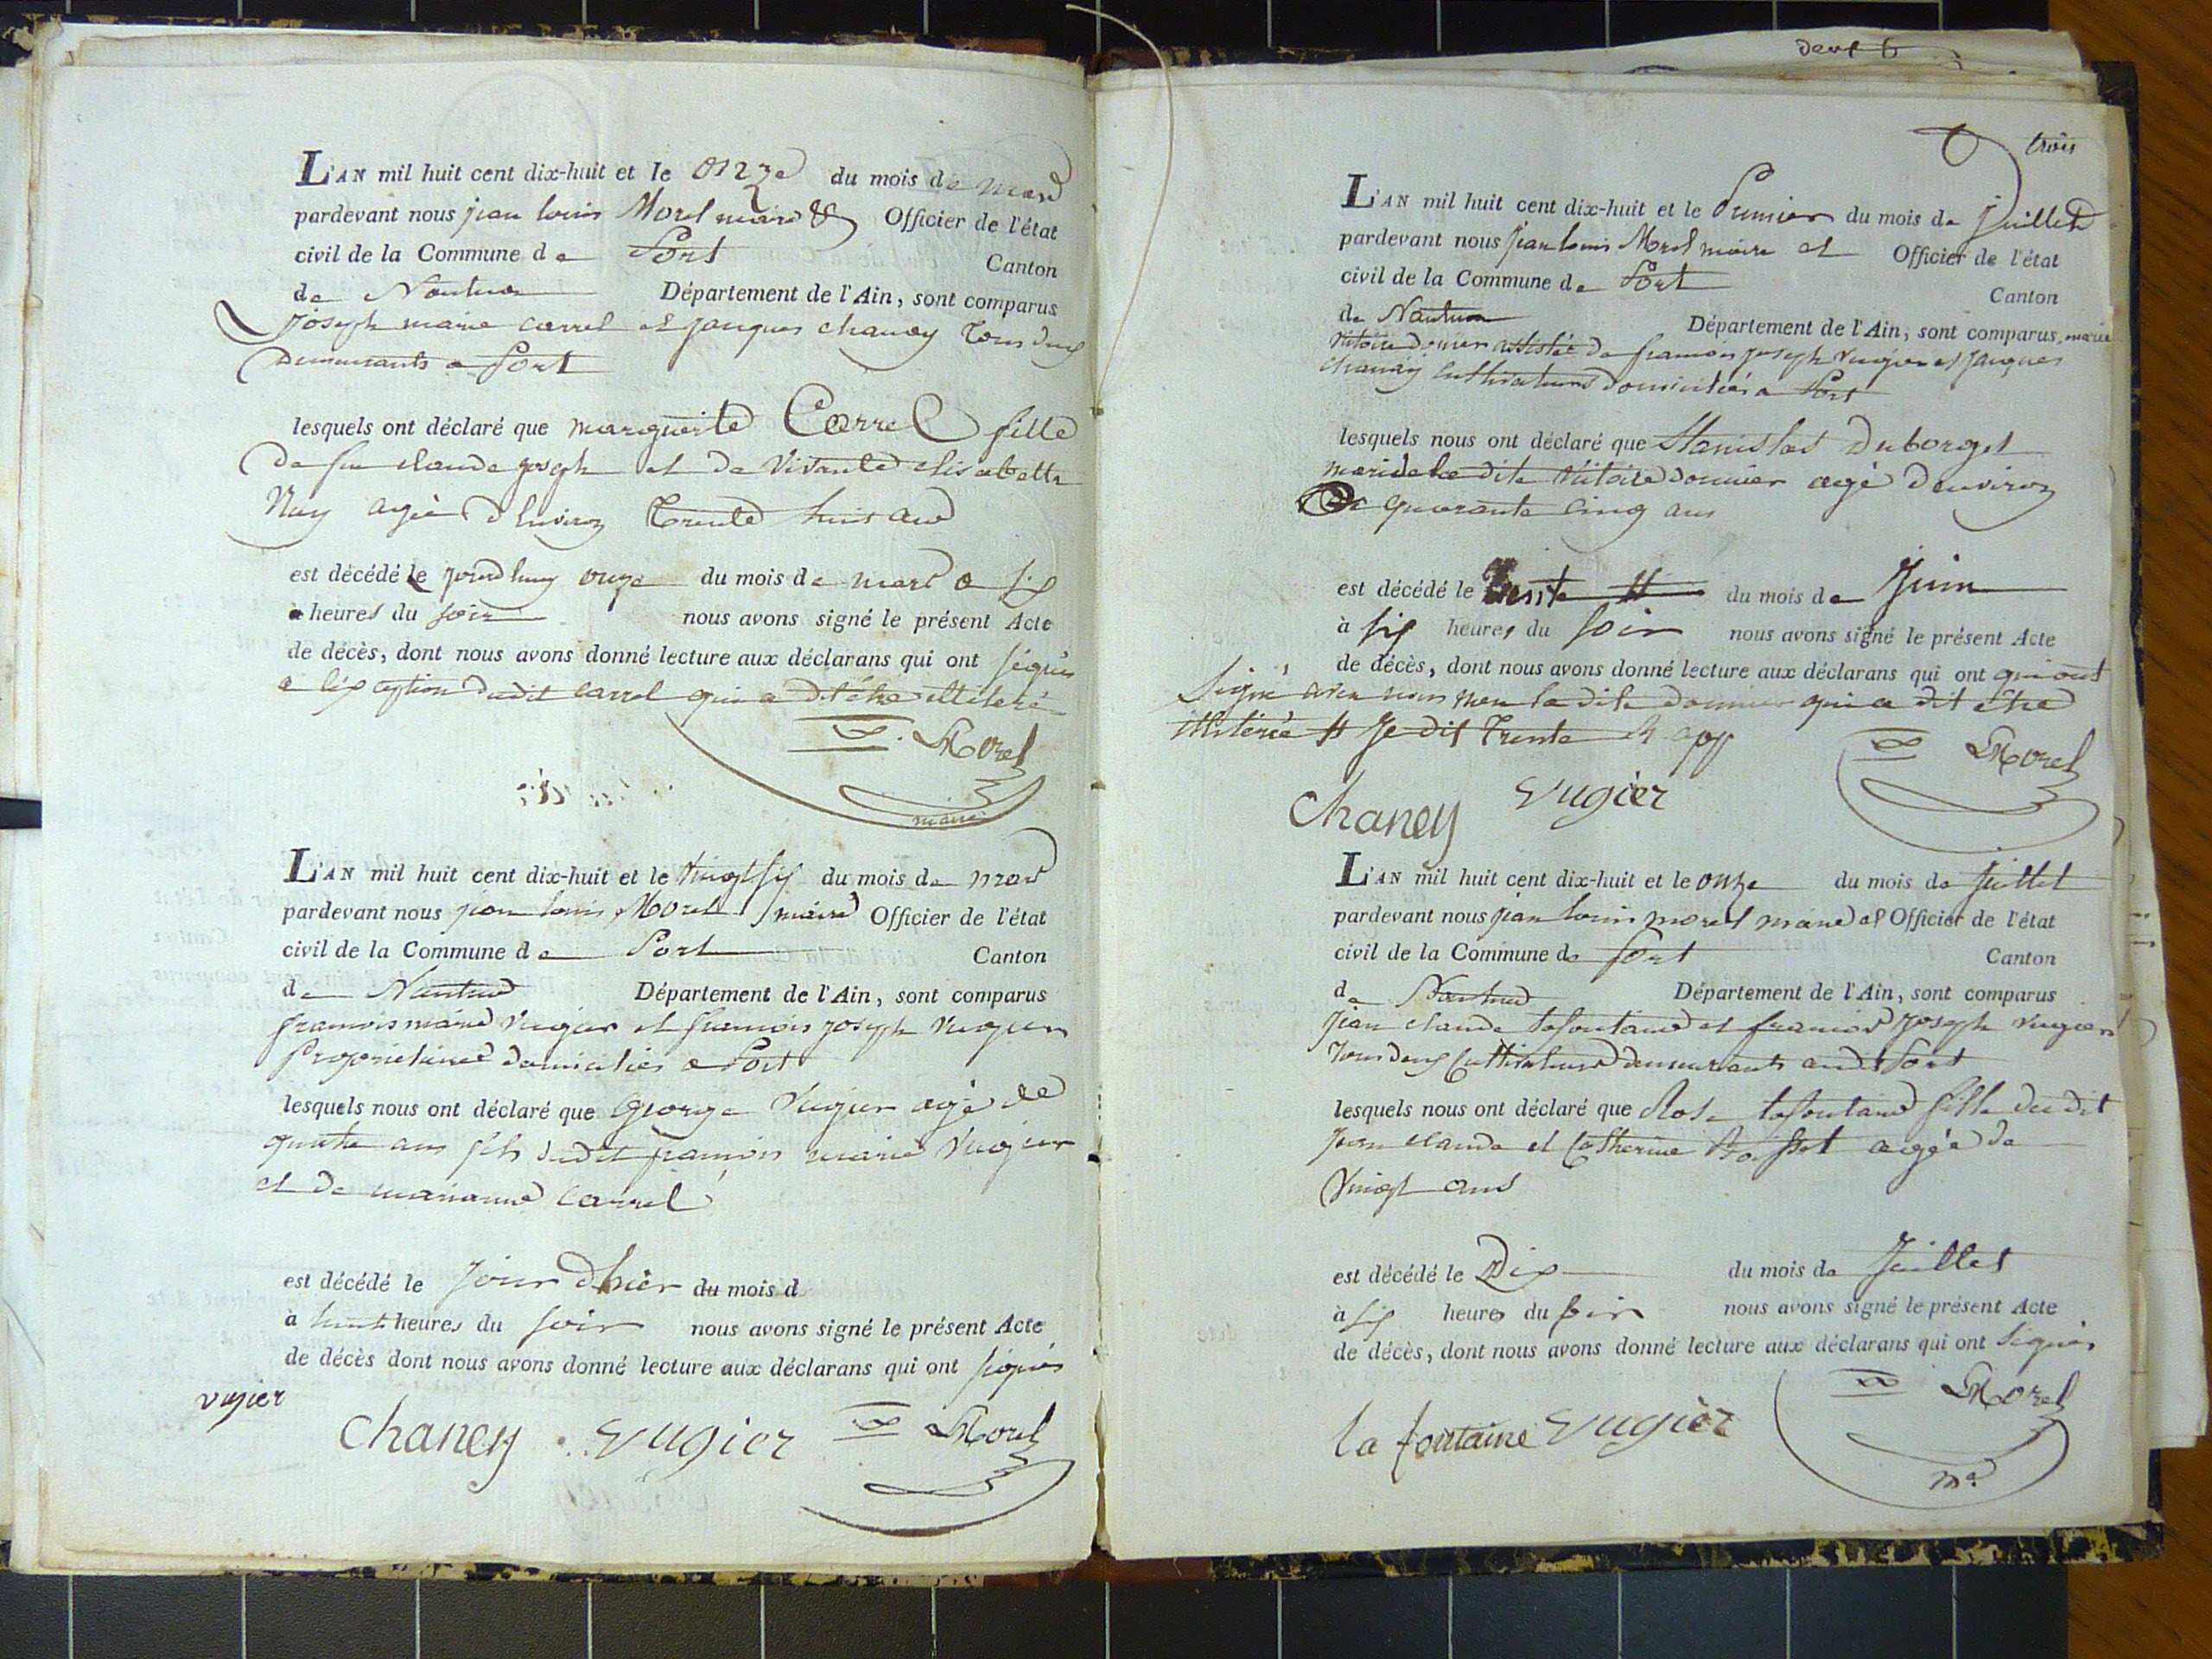 L'AN mil huit cent dix-huit et le onze du mois de mars
pardevant nous jean louis Morel maire & Officier de l'état
civil de la Commune de Port Canton
de Nantua Département de l'Ain, sont comparus
joseph marie carrel et jacques chaney tous deux
demeurants a Port
lesquels ont déclaré que marguerite Carrel fille
de feu claude joseph et de vivante elisabette
Nuy agée d'environ trente huit ans
est décédé le jourdhuy onze du mois de mars a six
à heures du soir nous avons signé le présent Acte
de décès, dont nous avons donné lecture aux déclarans qui ont signés
a l'exception dudit carrel qui a dit être illiteré
Morel
maire
L'AN mil huit cent dix-huit et le vingt six du mois de mars
pardevant nous jean louis Morel maire Officier de l'état
civil de la Commune de Port Canton
de Nantua Département de l'Ain, sont comparus
francois marie vugier et francois joseph vugier
proprietaires domiciliés a Port
lesquels nous ont déclaré que George vugier agé de
quatre ans fils dudit francois marie vugier
et de marianne carrel
est décédé le jour d'hier du mois d
à huit heures du soir nous avons signé le présent Acte
de décès dont nous avons donné lecture aux déclarans qui ont signés
vugier
chaney vugier Morel
deux
trois
L'AN mil huit cent dix-huit et le Premier du mois de juillet
pardevant nous jean louis Morel maire et Officier de l'état
civil de la Commune de Port Canton
de Nantua Département de l'Ain, sont comparus marie
vitoire donier assistée de francois joseph vugier et jacques
chaney cultivateurs domiciliés a Port
lesquels nous ont déclaré que Stanislas Duborget
mari de la dite vitoire donnier agé d'environ
de quarante cinq ans
est décédé le trente # du mois de Juin
à six heures du soir nous avons signé le présent Acte
de décès, dont nous avons donné lecture aux déclarans qui ont qui ont
signé avec nous non la dite donnier qui a dit être
illiterée # je dis trente
Morel
chaney vugier
L'AN mil huit cent dix-huit et le onze du mois de juillet
pardevant nous jean louis morel maire et Officier de l'état
civil de la Commune de Port Canton
de Nantua Département de l'Ain, sont comparus
jean claude lafontaine et francois joseph vugier
tous deux cultivateurs demeurants audit Port
lesquels nous ont déclaré que Rose lafontaine fille du dit
jean claude et Catherine agée de
vingt ans
est décédé le Dix du mois de Juillet
à six heures du soir nous avons signé le présent Acte
de décès, dont nous avons donné lecture aux déclarans qui ont signés
la fontaine vugier Morel